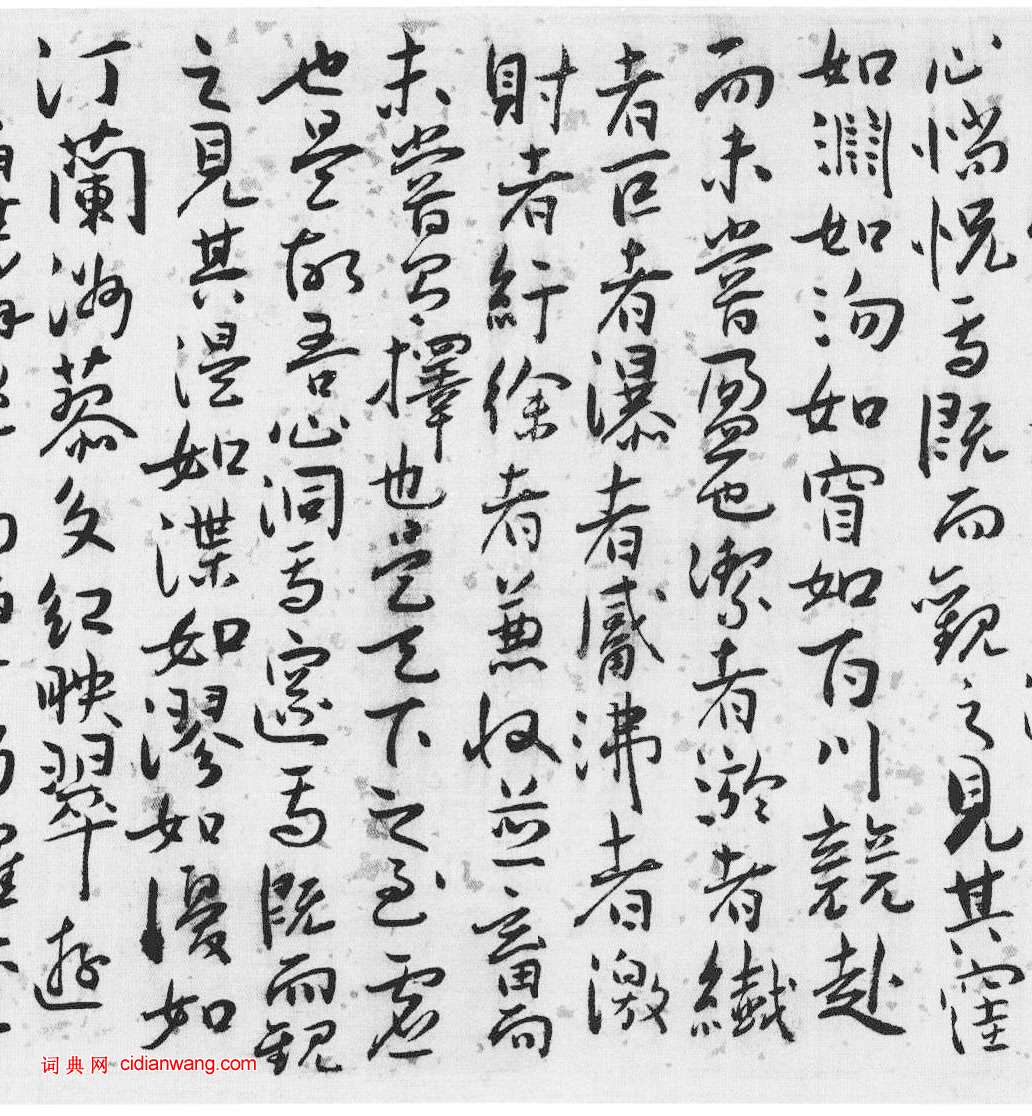 心惝怳焉既而觀之見其窪
如淵如沕如窅如百川競赴
而未嘗盈也潔者瀲者纖
者巨者瀑者觱沸者激
射者紆徐者兼收並蓄而
未嘗有擇也是天下之至虛
也是故吾心洞焉窾焉既而觀
之見其漫如渫如漻如漫如
汀蘭洲蓼交紅映翠遊
词典网 cidianwang.com